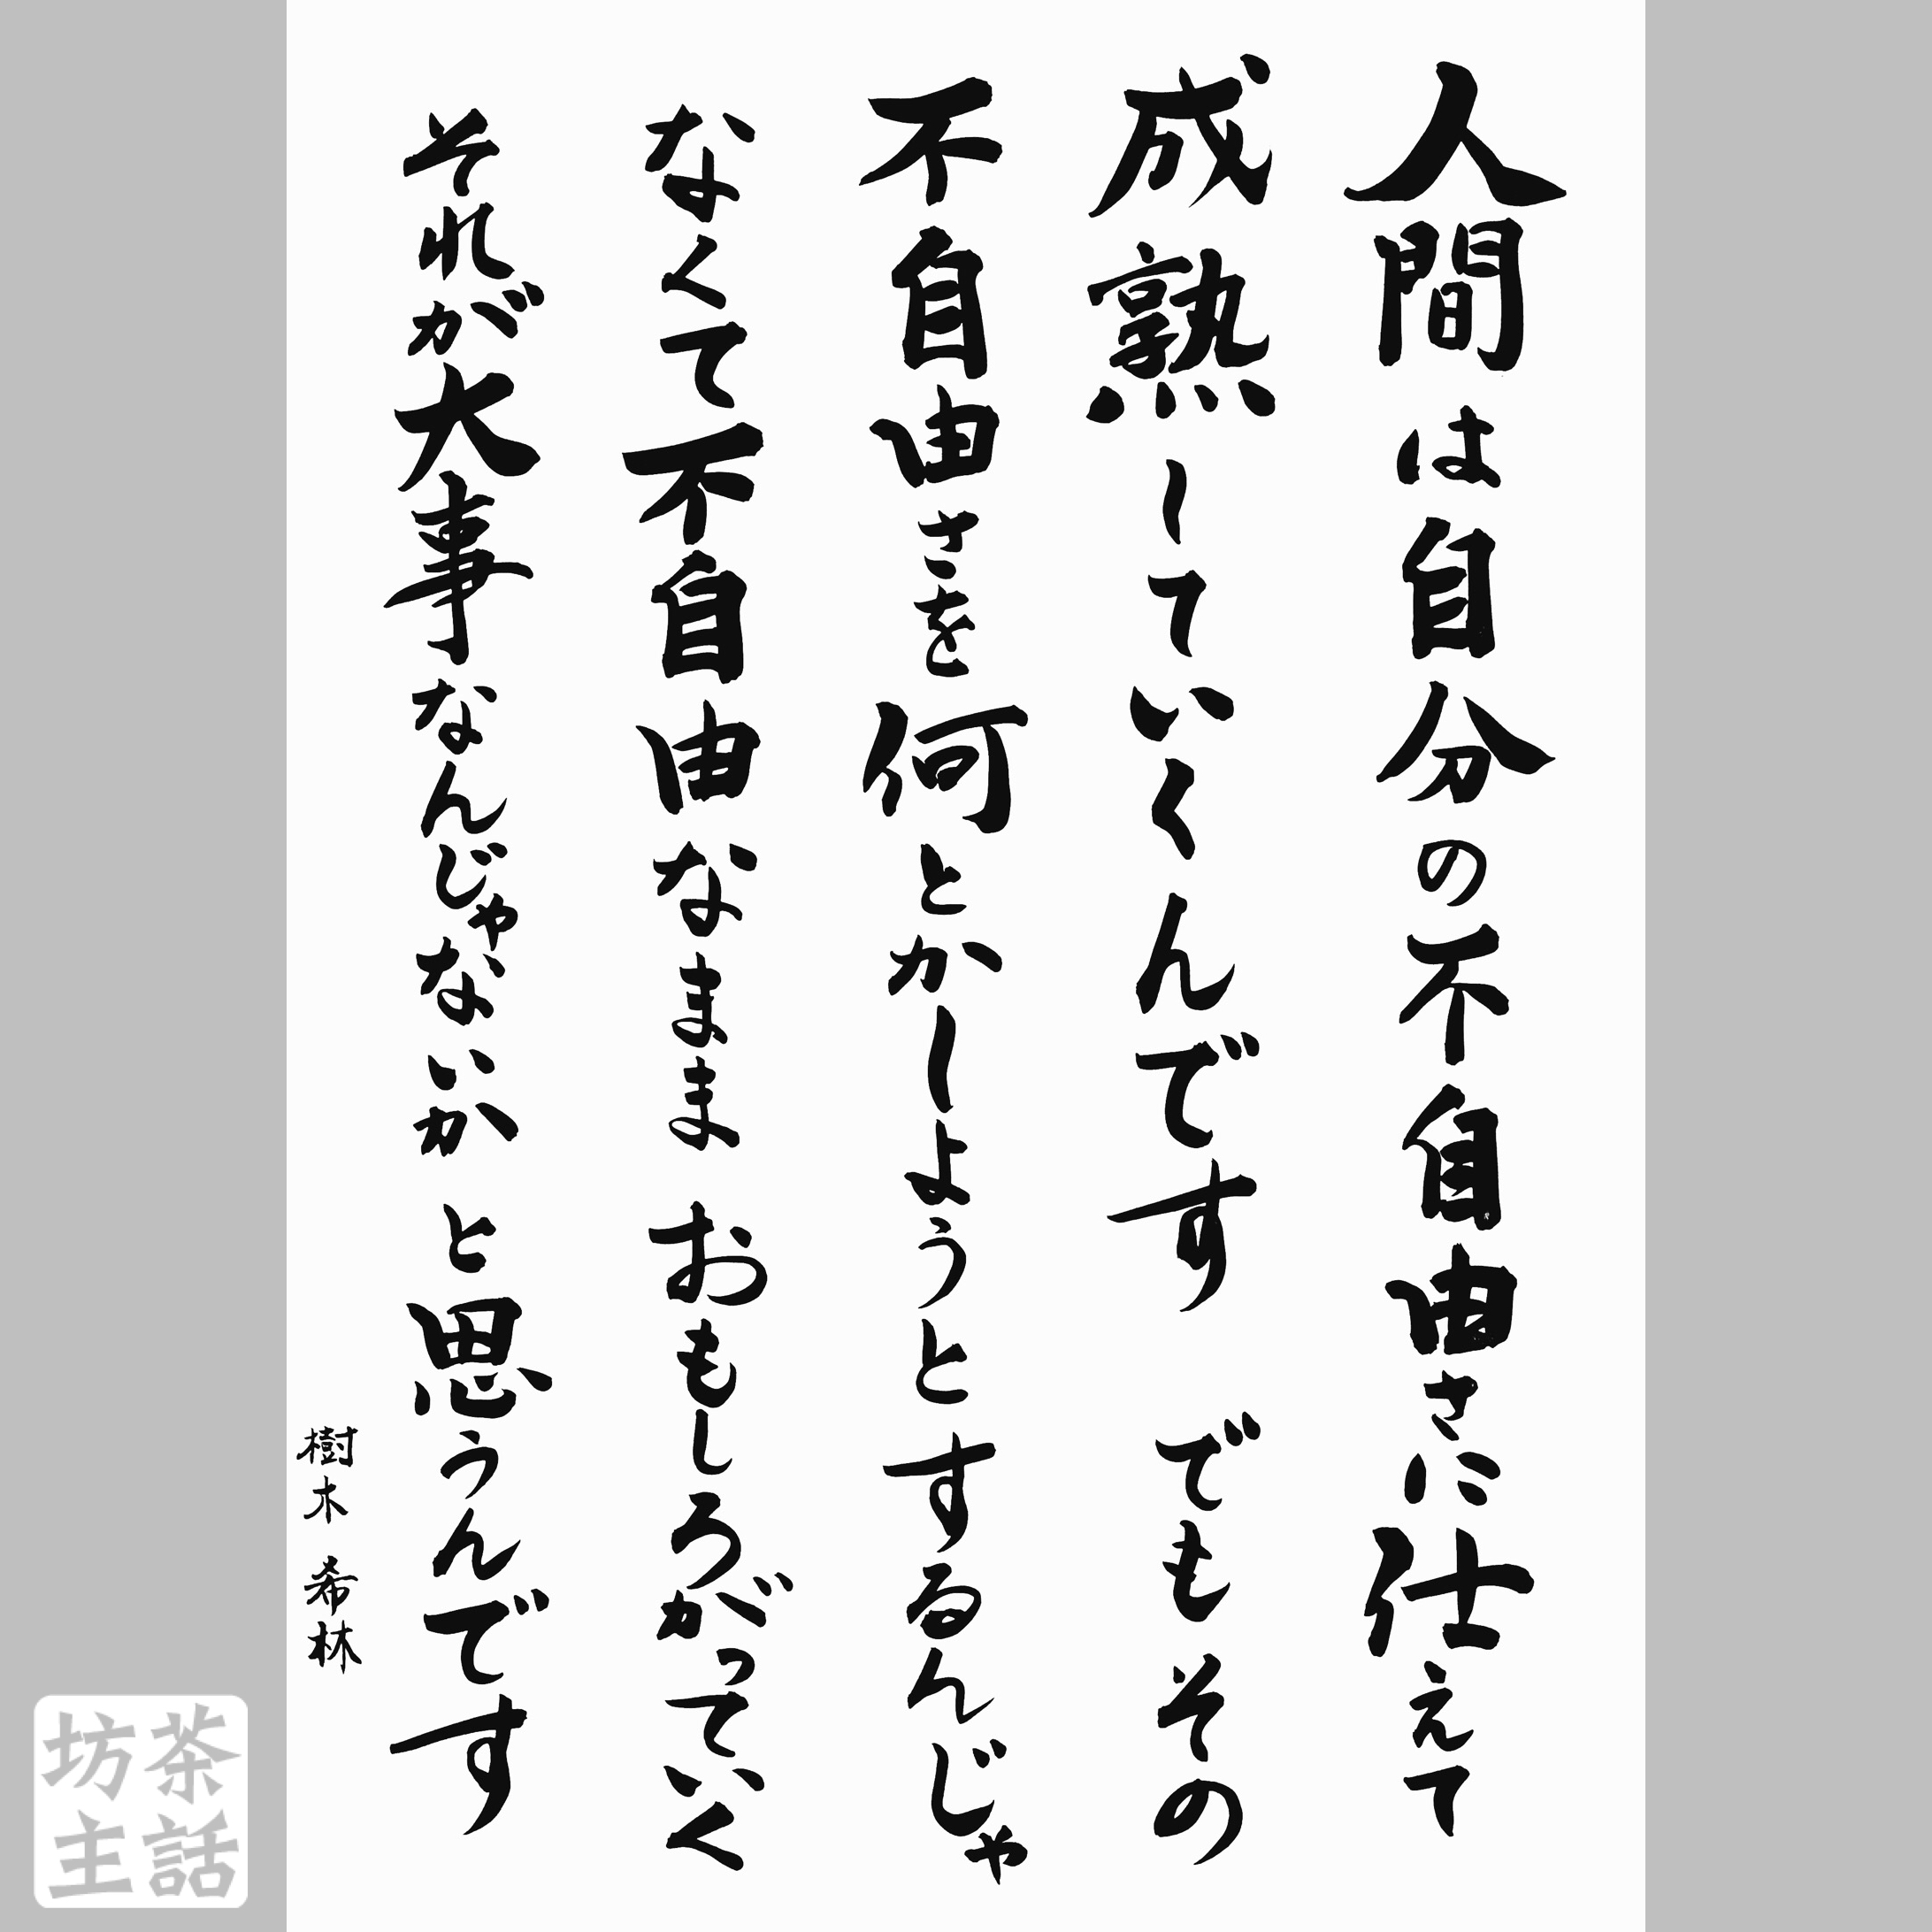 人間は自分の不自由さに仕えて
成熟していくんです でもその
不自由さを何とかしようとするんじゃ
なくて不自由なまま おもしろがっていく
それが大事なんじゃないか と思うんです
樹木 希林
茶話
坊主